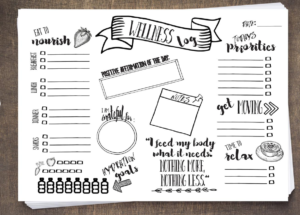 EAT TO
nourish
BREAKFAST
LUNCH
DINNER
SNACKS
WELLNESS
Log
POSITIVE AFFIRMATION OF THE DAY
I am
grateful for
NOTES
HYDRATION
goals
"I feed my body
what it needs.
NOTHING MORE,
NOTHING LESS."
TODAY'S
priorities
get MOVING
TIME TO
relax